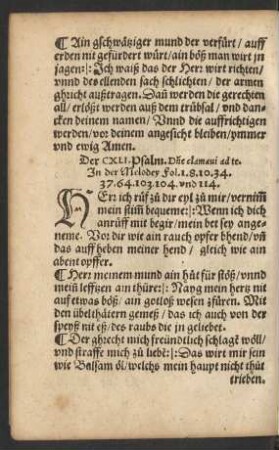 ¶ Ain gschwätziger mund der verfürt / auff
erden nit gefürdert würt / ain böß man wirt jn
jagen:|: Jch waiß das der Herr wirt richten /
vnnd des ellenden sach schlichten / der armen
ghricht außtragen. Dañ werden die gerechten
all / erlößt werden auß dem trübsal / vnd dan-
cken deinem namen / Vnnd die auffrichtigen
werden / vor deinem angesicht bleiben / ymmer
vnd ewig Amen.
Der CXLI. Psalm. Dñe clamaui ad te.
Jn der Melodey Fol. 1. 8. 10. 34.
37. 64. 103. 104. vnd 114.
HErr ich rüff zü dir eyl zü mir / vernim̃
mein stim̃ bequeme:|: Wenn ich dich
anrüff mit begir / mein bet sey ange-
neme. Vor dir wie ain rauch opfer bhend / vñ
das auff heben meiner hend / gleich wie ain
abent opffer.
¶ Herr meinem mund ain hüt für stöß / vnnd
mein leffzen am thüre:|: Nayg mein hertz nit
auf etwas böß / ain gotloß wesen zfüren. Mit
den übelthätern gemeß / das ich auch von der
speyß nit eß / des raubs die jn geliebet.
¶ Der ghrecht mich freündtlich schlage wöll /
vnd straffe mich zü liebe:|: Das wirt mir sein
wie Balsam öl / welchs mein haupt nicht thüt
trieben.